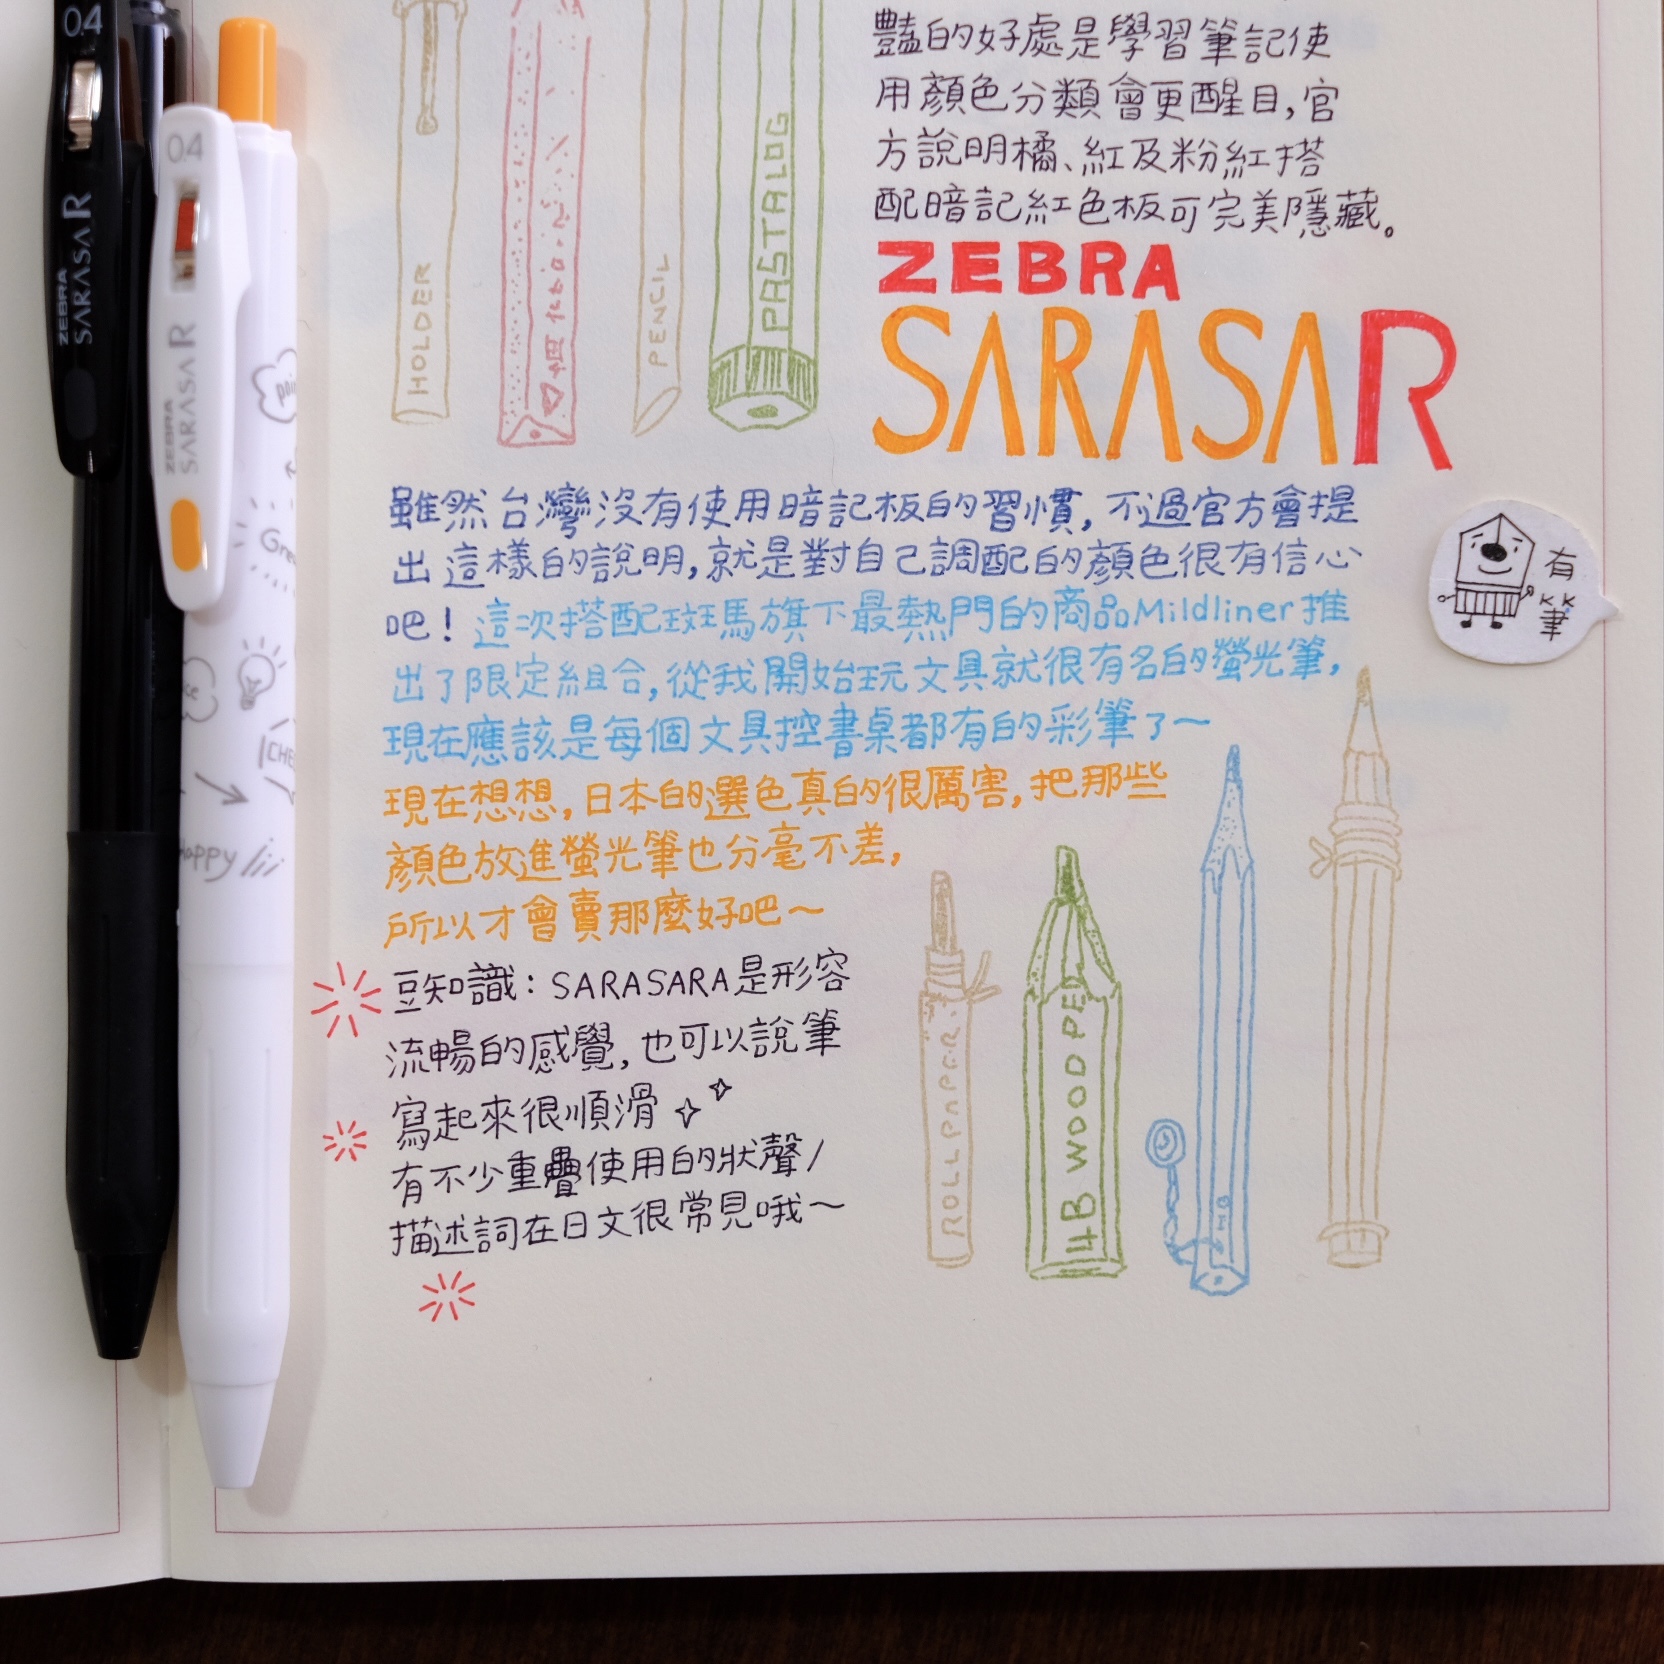 豔的好處是學習筆記使
用顏色分類會更醒目,官
方說明橘、紅及粉紅搭
配暗記紅色板可完美隱藏。
ZEBRA
SARASAR
雖然台灣沒有使用暗記板的習慣,不過官方會提
出這樣的說明,就是對自己調配的顏色很有信心
吧!這次搭配斑馬旗下最熱門的商品Mildliner推
出了限定組合,從我開始玩文具就很有名的螢光筆,
現在應該是每個文具控書桌都有的彩筆了~
現在想想,日本的選色真的很厲害,把那些
顏色放進螢光筆也分毫不差,
所以才會賣那麼好吧~
豆知識:SARASARA是形容
流暢的感覺,也可以說筆
寫起來很順滑
有不少重疊使用的狀聲/
描述詞在日文很常見哦~
HOLDER
PENCIL
PASTALOG
ROLL PAPER.
4B WOOD PE
有
筆
04
ZEBRA
SARASA R
04
ZEBRA
SARASA R
Gree
CHE
Happy